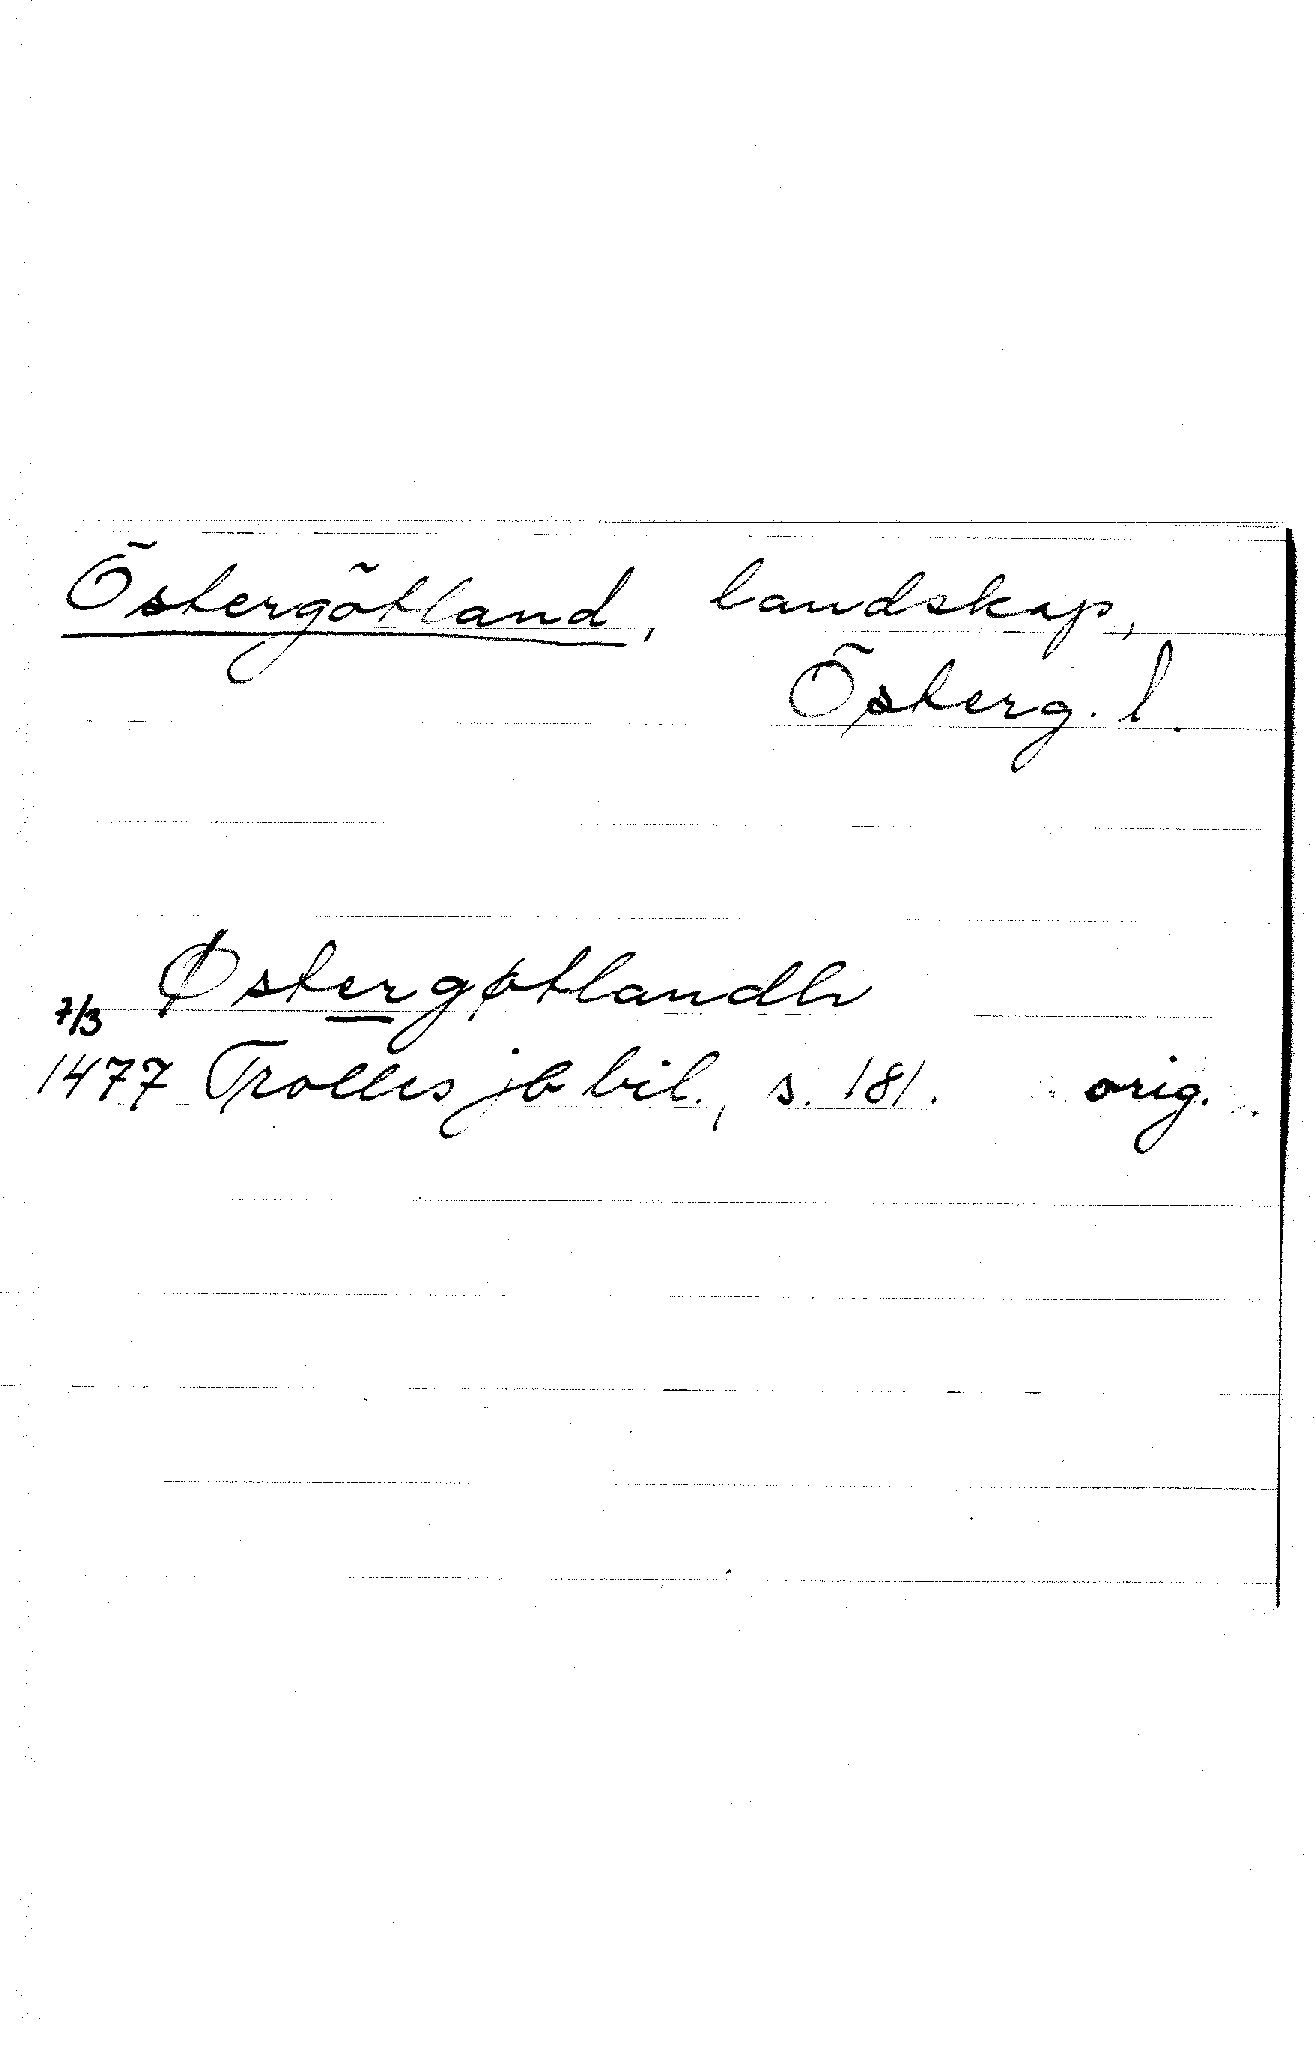 Östergötland, landskap,
Österg. l.
Østergøtlandh
7/3
1477 Trolles jb bil., s. 181. orig.